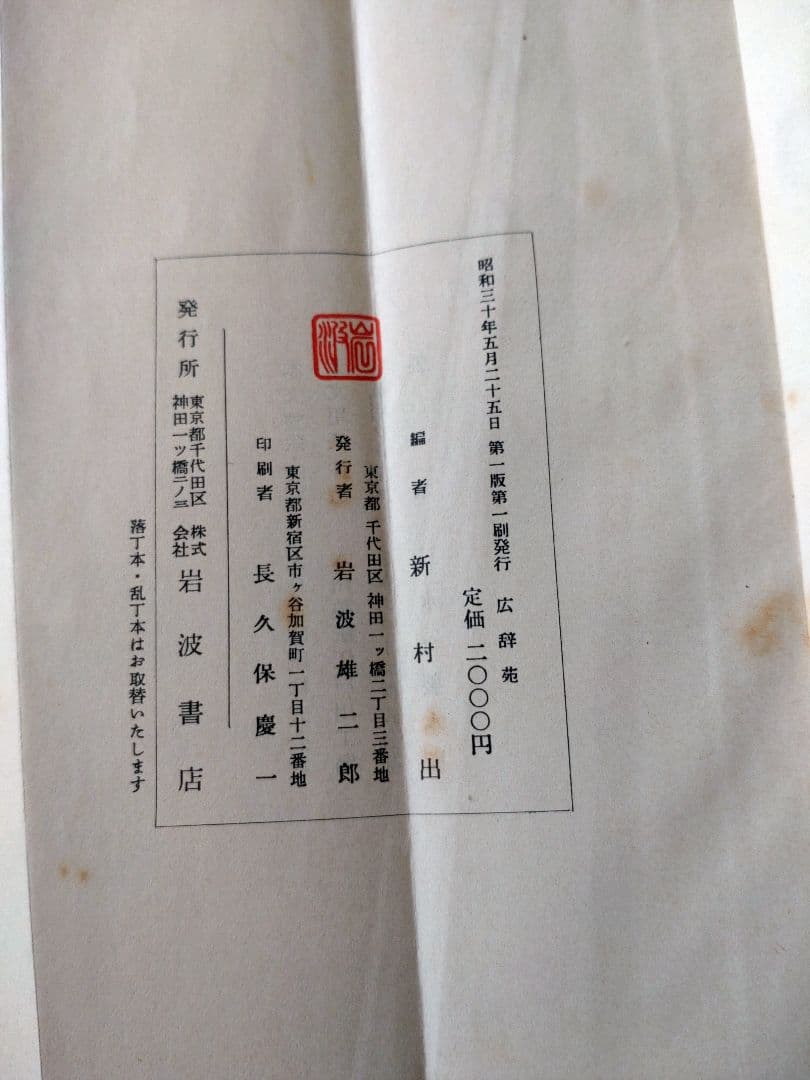 昭和三十年五月二十五日 第一版第一刷発行 広辞苑
定価 二〇〇〇円
編者 新村出
東京都千代田区神田一ッ橋二丁目三番地
発行者 岩波雄二郎
岩波
東京都新宿区市ヶ谷加賀町一丁目十二番地
印刷者 長久保慶一
発行所 東京都千代田区神田一ッ橋二ノ三 株式会社 岩波書店
落丁本・乱丁本はお取替いたします